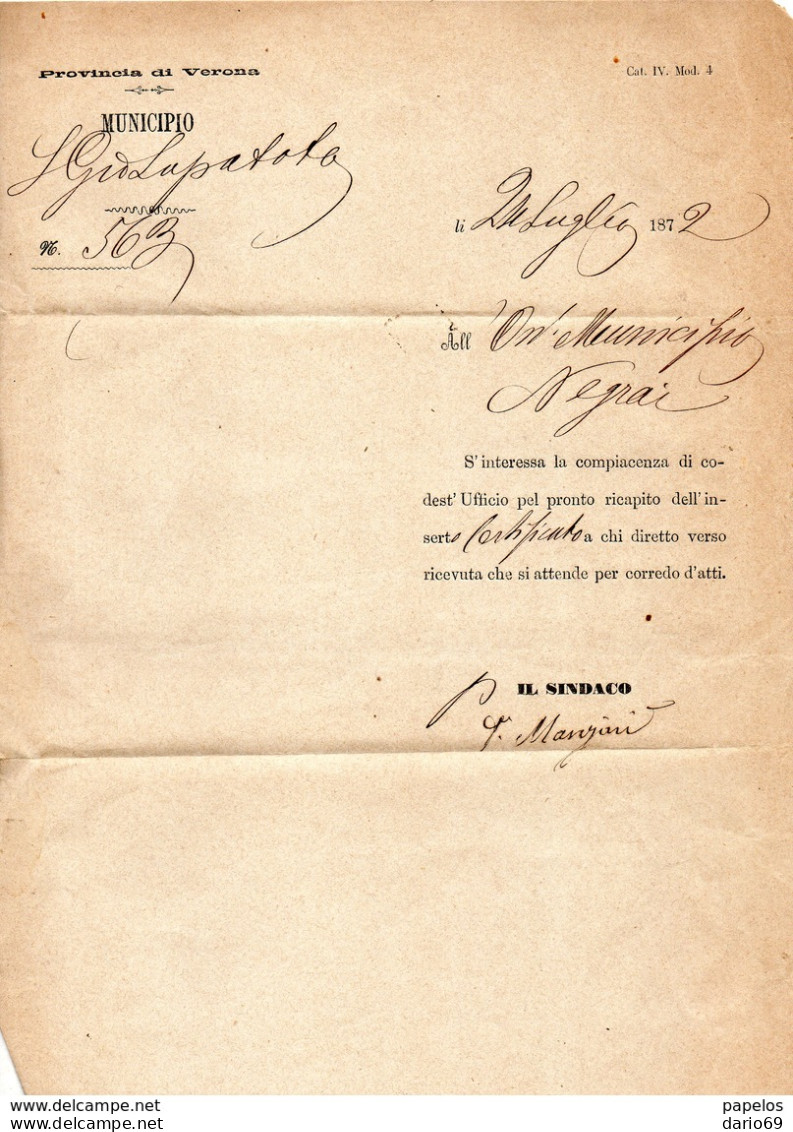 Provincia di Verona
Cat. IV. Mod. 4
MUNICIPIO
S Gio Lupatoto
li 24 Luglio 1872
N. 563
All' On. Municipio
Negrar
S' interessa la compiacenza di co-
dest' Ufficio pel pronto ricapito dell' in-
serto Certificato a chi diretto verso
ricevuta che si attende per corredo d'atti.
P IL SINDACO
Manzini
www.delcampe.net
papelos
dario69